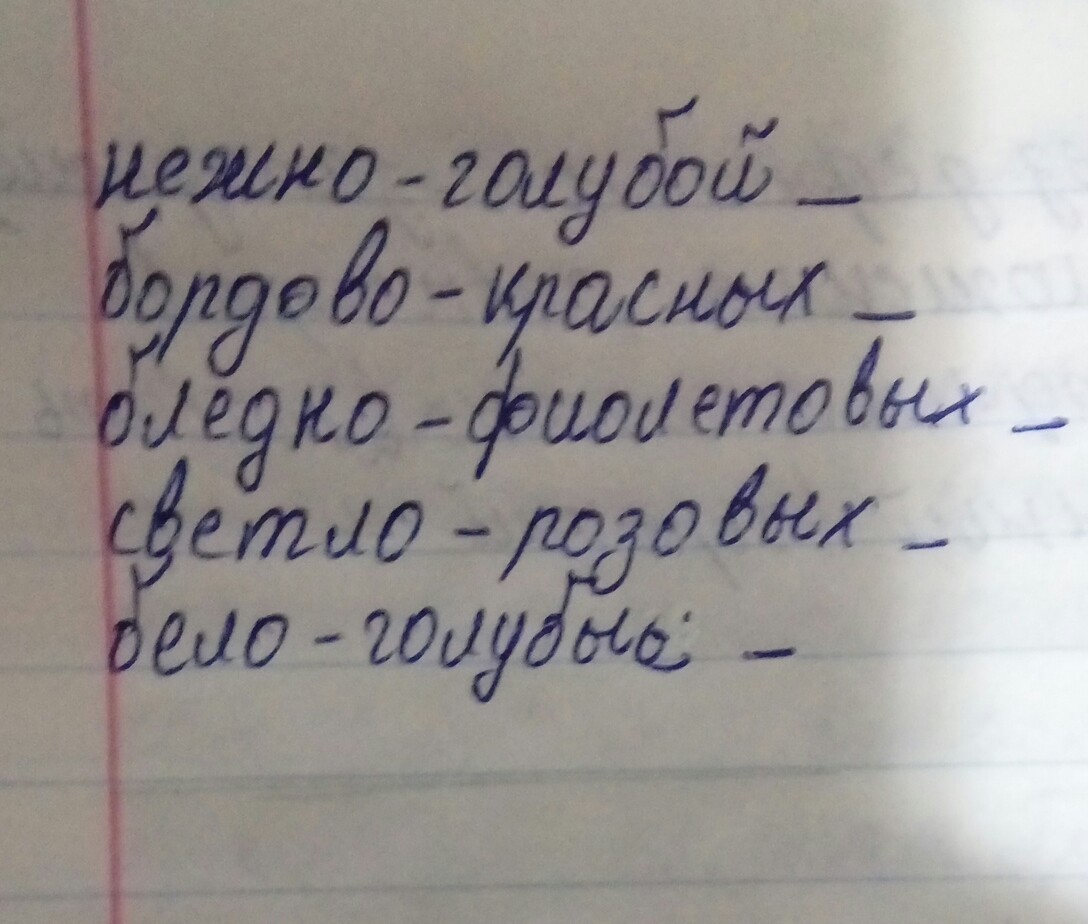 нежно - голубой –
бордово - красных –
бледно - фиолетовых –
светло - розовых –
бело - голубые –